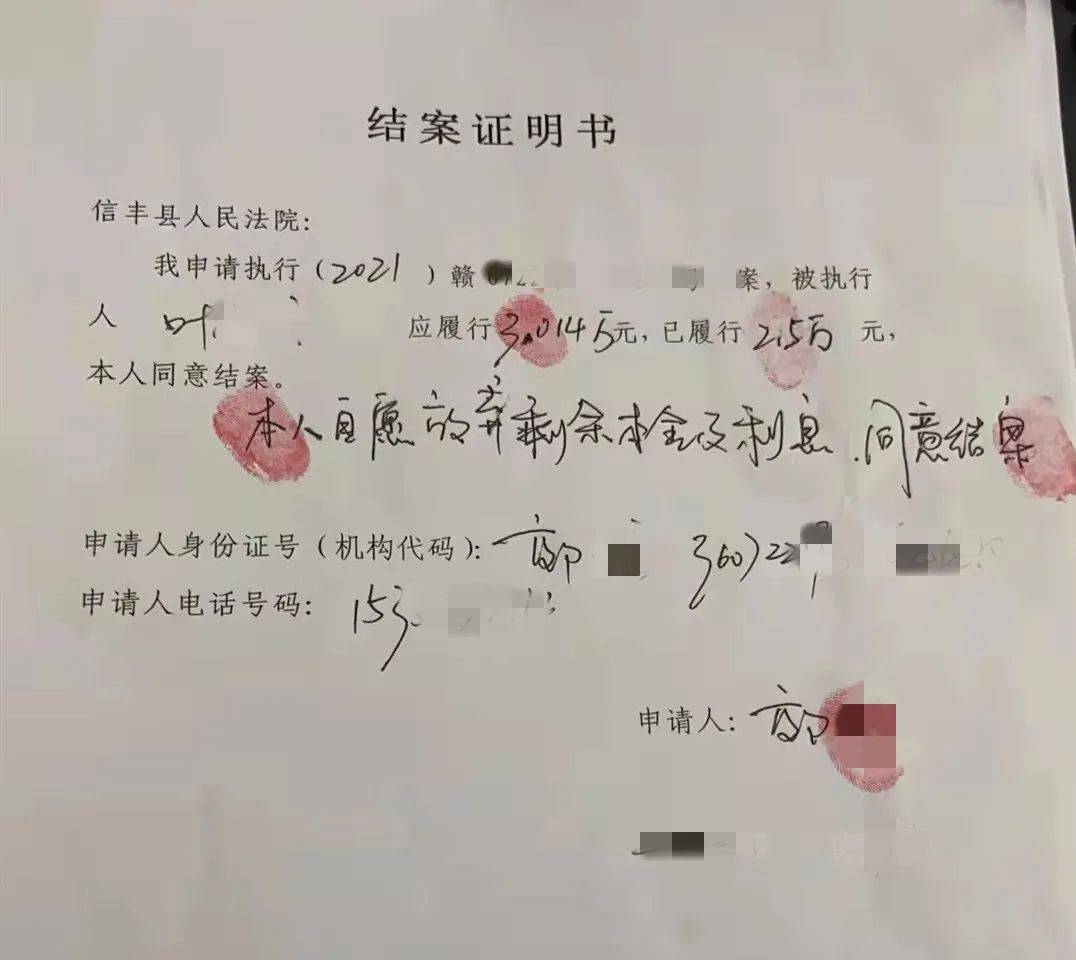 结案证明书
信丰县人民法院:
我申请执行(2021)赣0722 案,被执行
人 叶 应履行3.014万元,已履行2.5万元,
本人同意结案。
本人自愿放弃剩余本金及利息.同意结案
申请人身份证号(机构代码): 郭 360722
申请人电话号码: 153
申请人: 郭